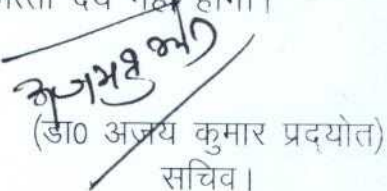 देय नहीं होगा।
(डा0 अजय कुमार प्रद्योत)
सचिव।